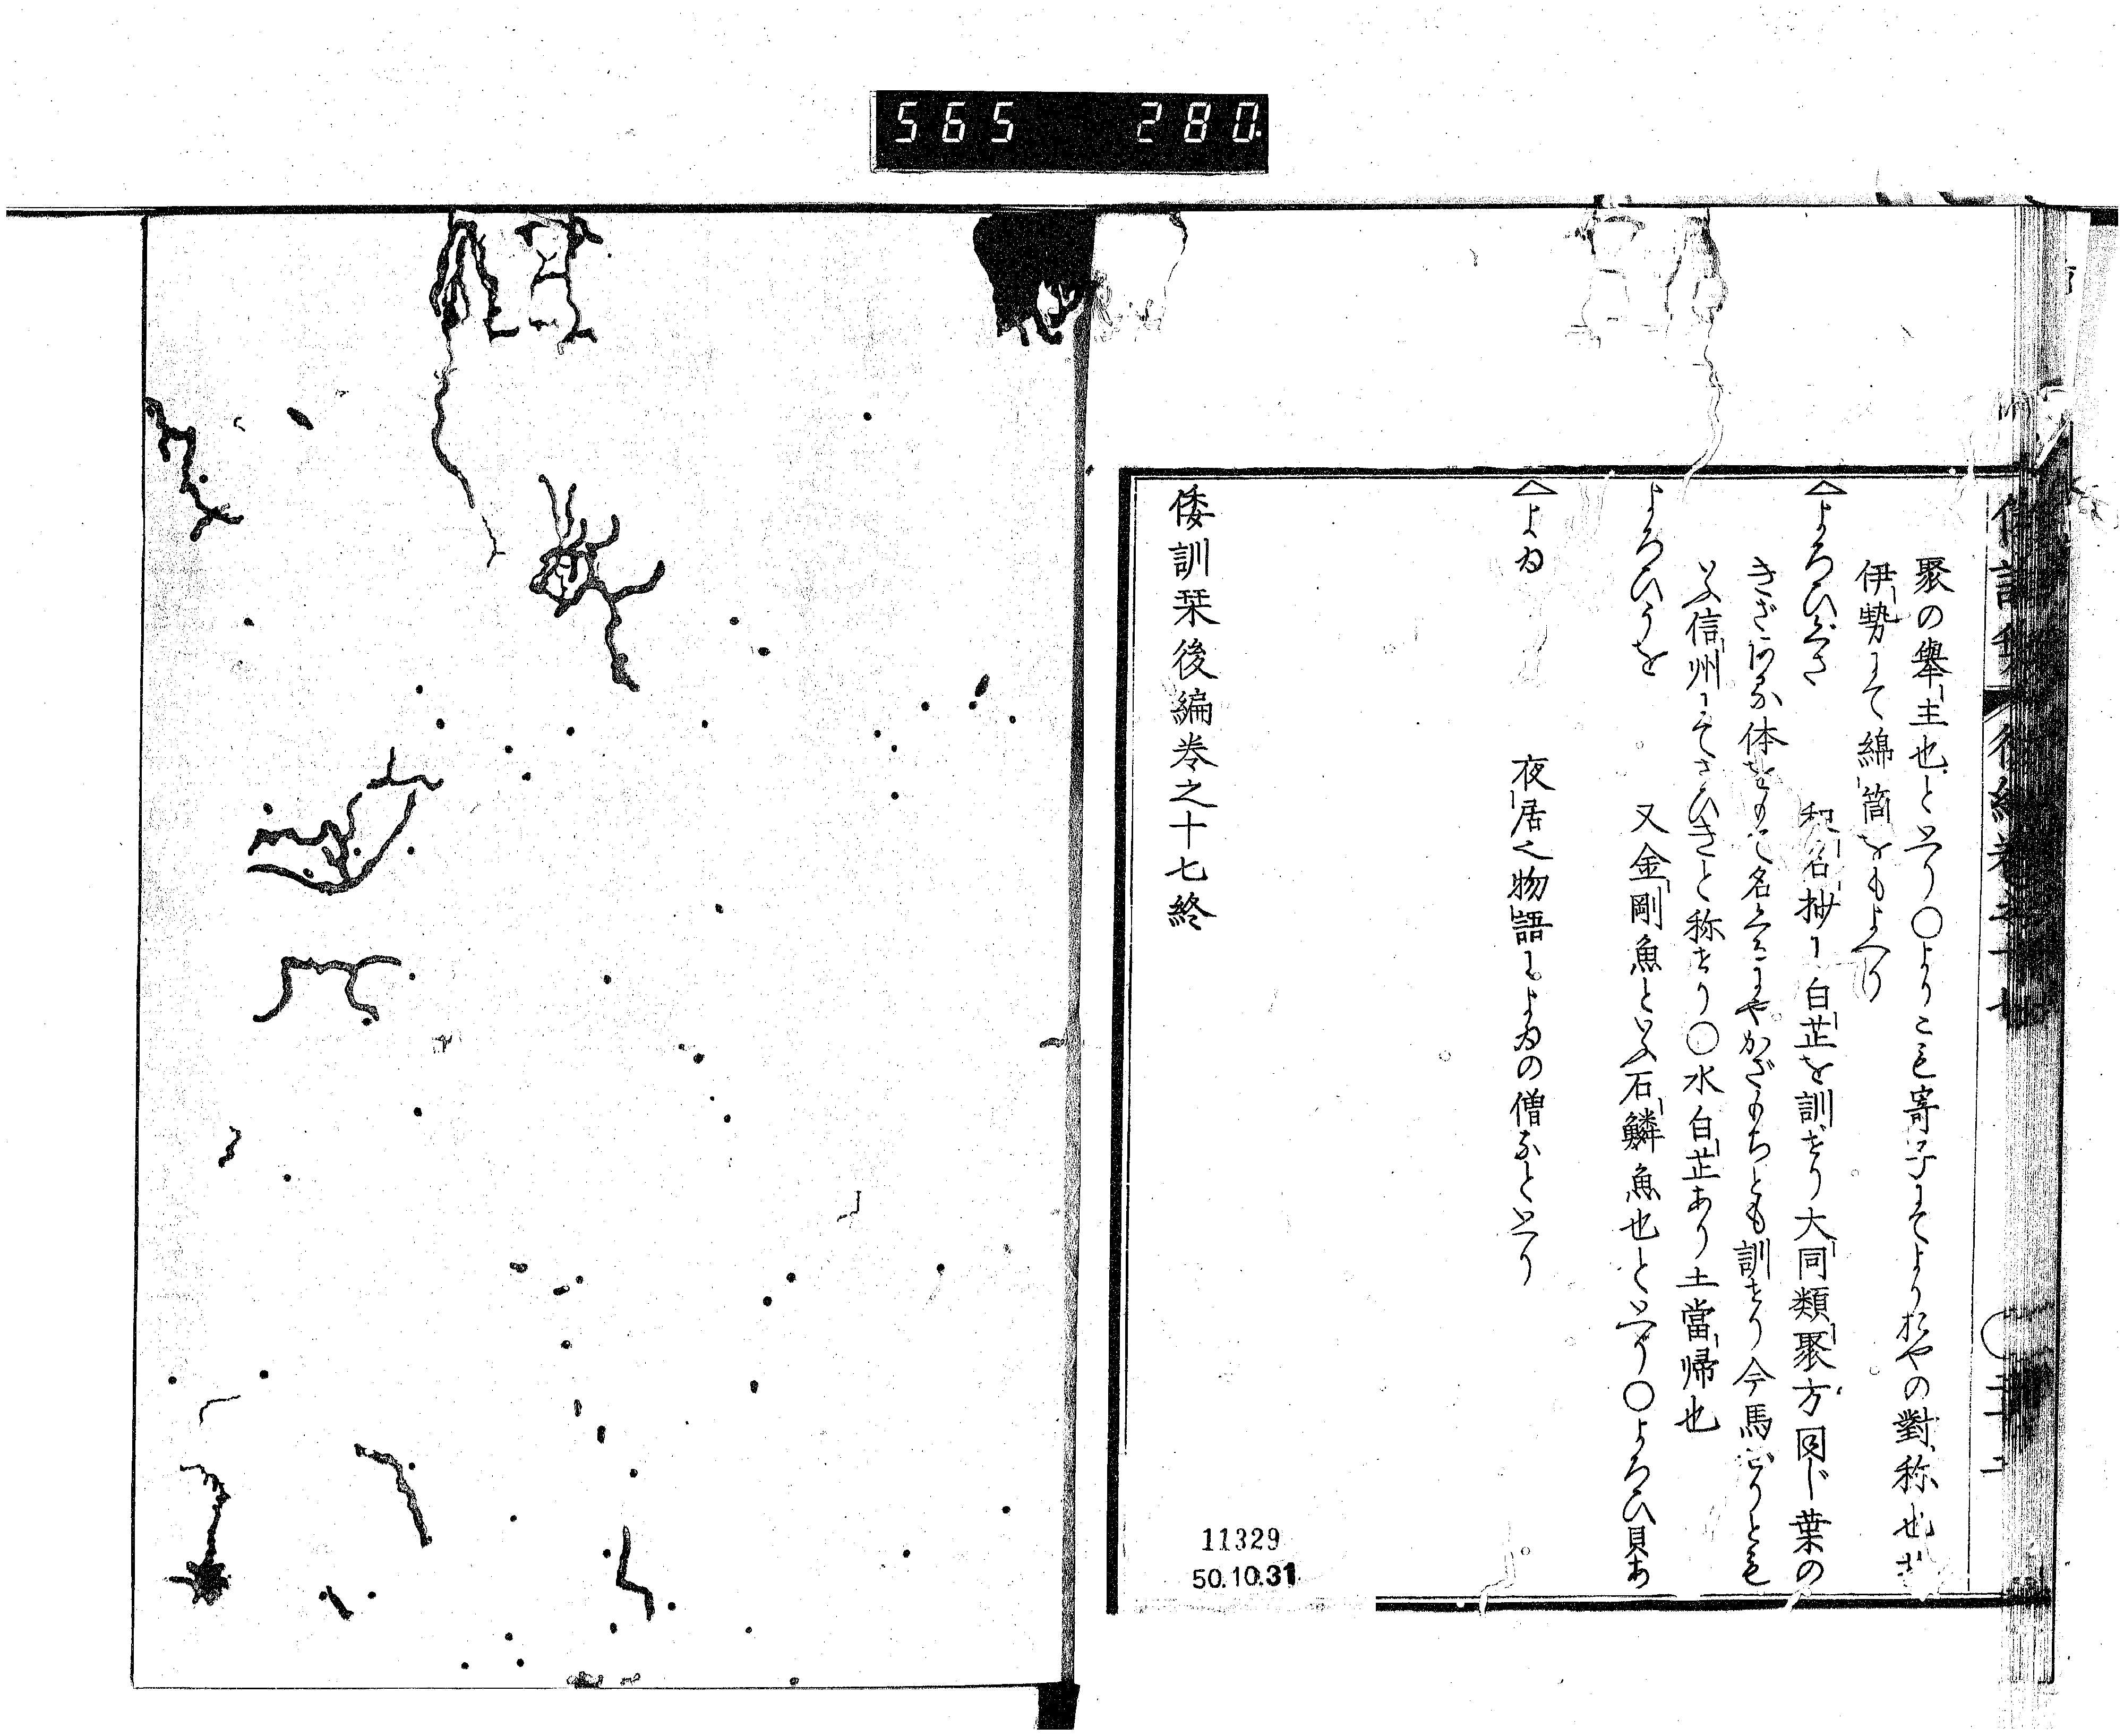 565 280.
聚の舉主也といへり○よりこも寄子にてよりおやの對称也
伊勢にて綿筒をもよべり
へよろひぐさ 和名抄に白芷を訓ぜり大同類聚方同じ葉の
体をもて名くるにやかざもちとも訓せり今馬ぜりとも
いふ信州にてさひきと称せり○水白芷あり土當帰也
よろひうを 又金剛魚といふ石鱗魚也といへり○よろひ貝あ
へよゐ 夜居之物語によゐの僧なといへり
倭訓栞後編巻之十七終
11329
50.10.31